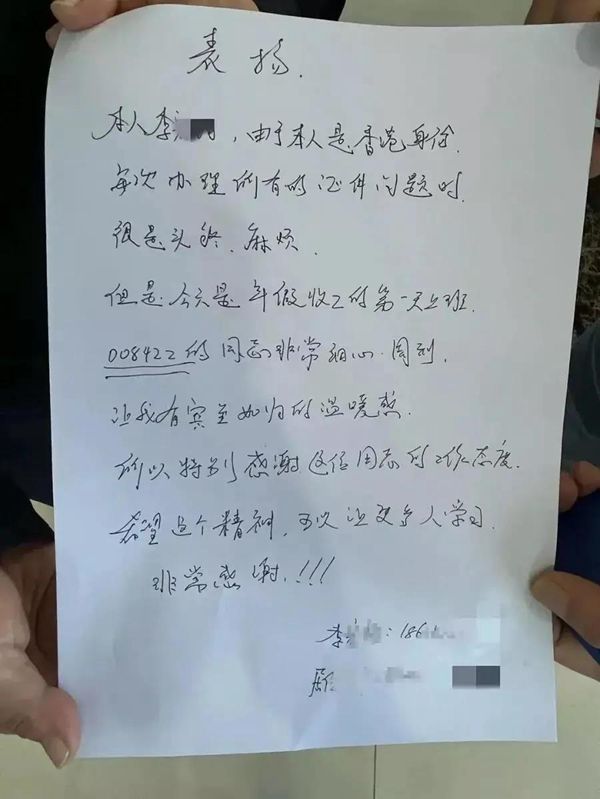 表扬.
本人李,由于本人是香港身份.
每次办理所有的证件问题时.
很是头疼.麻烦.
但是今天是年假收工的第一天上班.
008422的同志非常细心.周到.
让我有宾至如归的温暖感.
所以特别感谢这位同志的工作态度.
希望这个精神,可以让更多人学习.
非常感谢.!!!
李:186